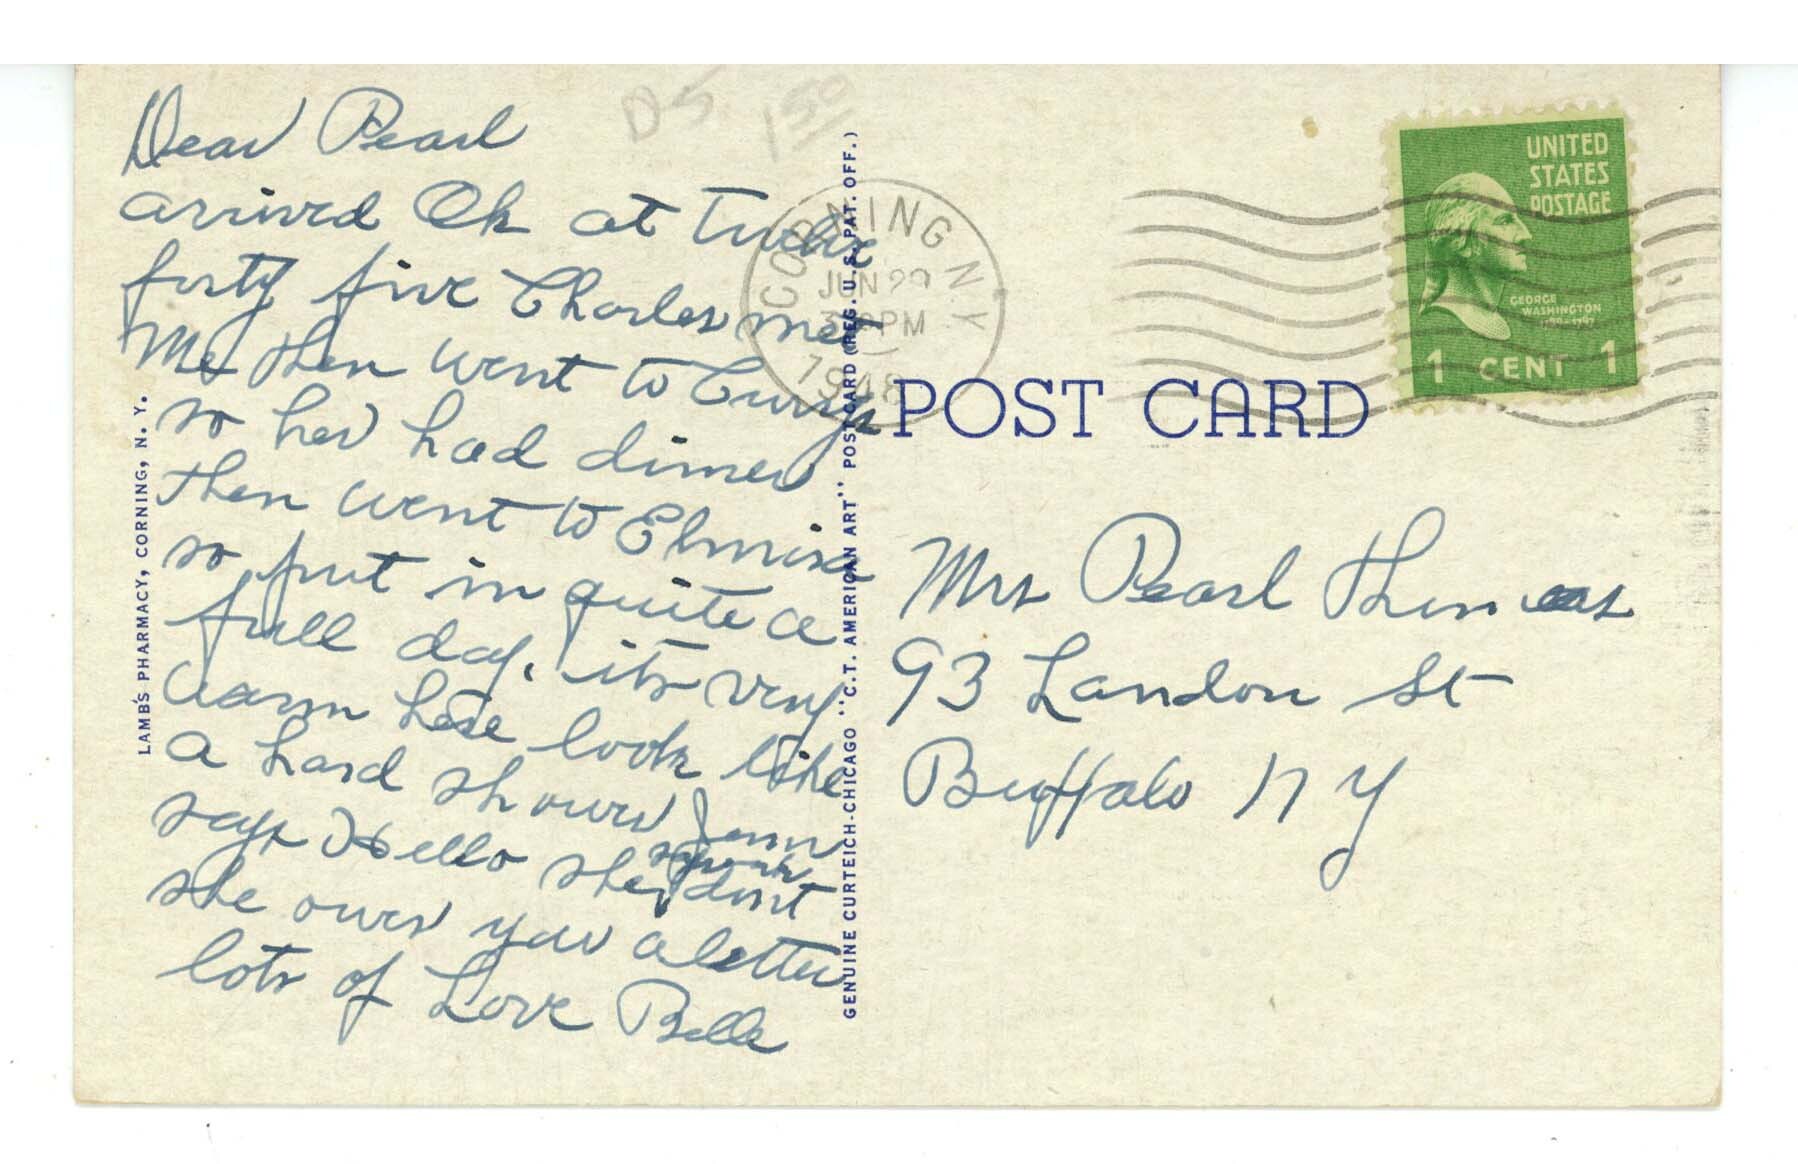 D5 1.50
Dear Pearl
arrived Ok at twelve
forty five Charles met
me then went to
so her had dinner
then went to Elmira
so put in quite a
full day. its very
warm here look like
a hard shower Jenn
says Hello she dont
she owes you a letter
lots of Love Belle
LAMB'S PHARMACY, CORNING, N. Y.
GENUINE CURTEICH-CHICAGO "C.T. AMERICAN ART" POST CARD (REG. U.S. PAT. OFF.)
CORNING N.Y.
JUN 29
PM
1948
UNITED
STATES
POSTAGE
GEORGE
WASHINGTON
1789-1797
1 CENT 1
POST CARD
Mrs Pearl
93 Landon St
Buffalo N Y